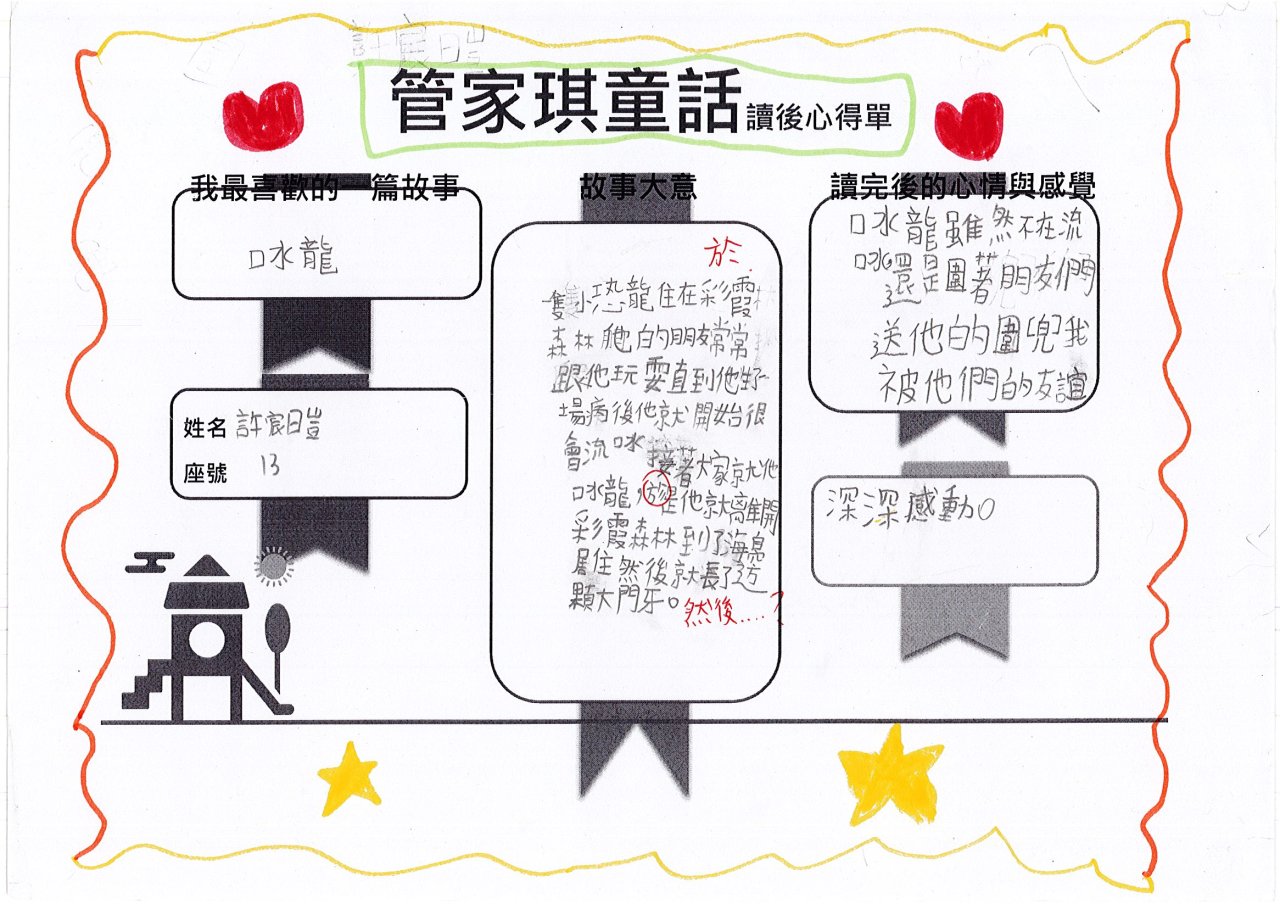 許宸暟
管家琪童話 讀後心得單
我最喜歡的一篇故事
口水龍
姓名 許宸暟
座號 13
故事大意
於
隻小恐龍住在彩霞
森林 他的朋友常常
跟他玩耍直到他生
場病後他就開始很
會流口水 接著大家就他
口水龍 於是他就離開
彩霞森林到了海島
居住然後就長了
顆大門牙。 然後....?
讀完後的心情與感覺
口水龍雖然不在流
口水還是圍著朋友們
送他的圍兜我
被他們的友誼
深深感動。